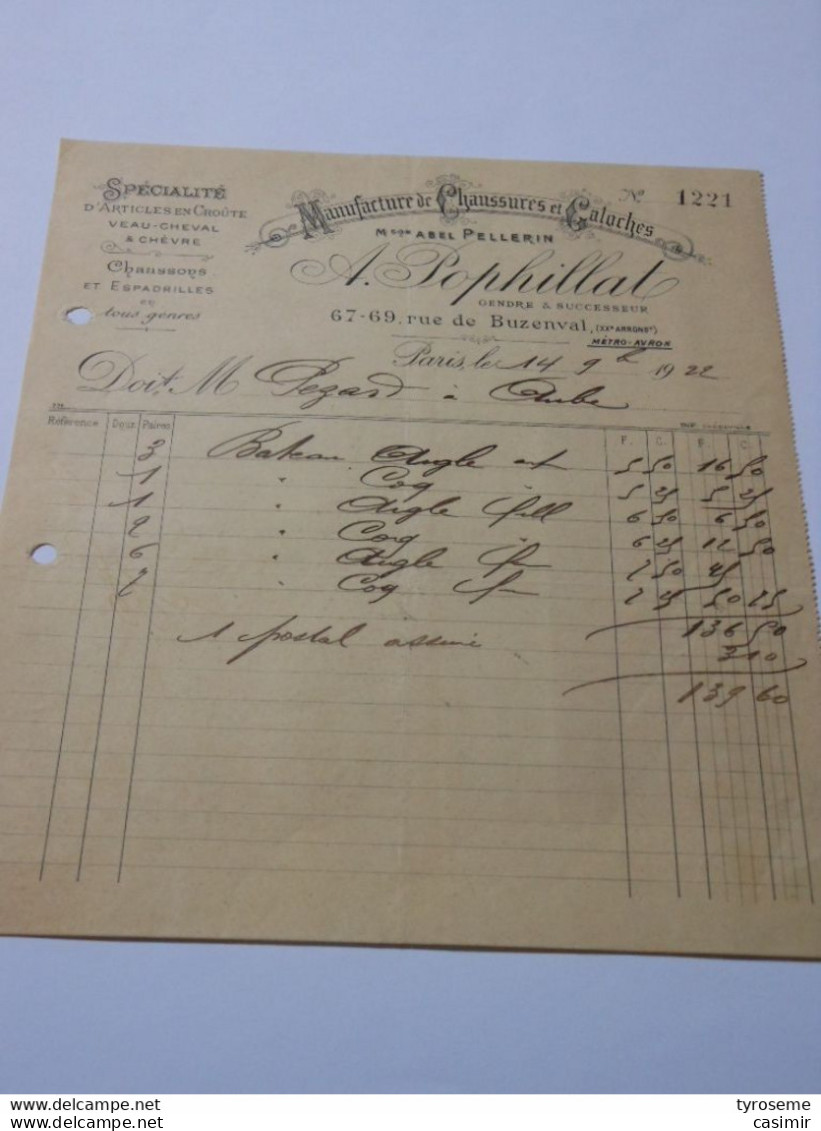 SPÉCIALITÉ
D'ARTICLES EN CROÛTE
VEAU-CHEVAL
& CHÈVRE
Chaussons
ET ESPADRILLES
en
tous genres
Manufacture de Chaussures et Galoches
No 1221
Mson ABEL PELLERIN
A. Pophillat
GENDRE & SUCCESSEUR
67-69, rue de Buzenval, (XXe ARRONDt)
MÉTRO-AVRON
Paris, le 14 9b 1922
Doit, M Pezard à Aube
Référence Douz Paires F. C. F. C.
3 Bateau Aigle 5 50 16 50
1 " Coq " 5 25 5 25
1 " Aigle fill 6 50 6 50
2 " Coq " 6 25 12 50
6 " Aigle 7 50 45
7 " Coq 7 25 50 75
136 50
1 postal 3 10
139 60
tyroseme
casimir